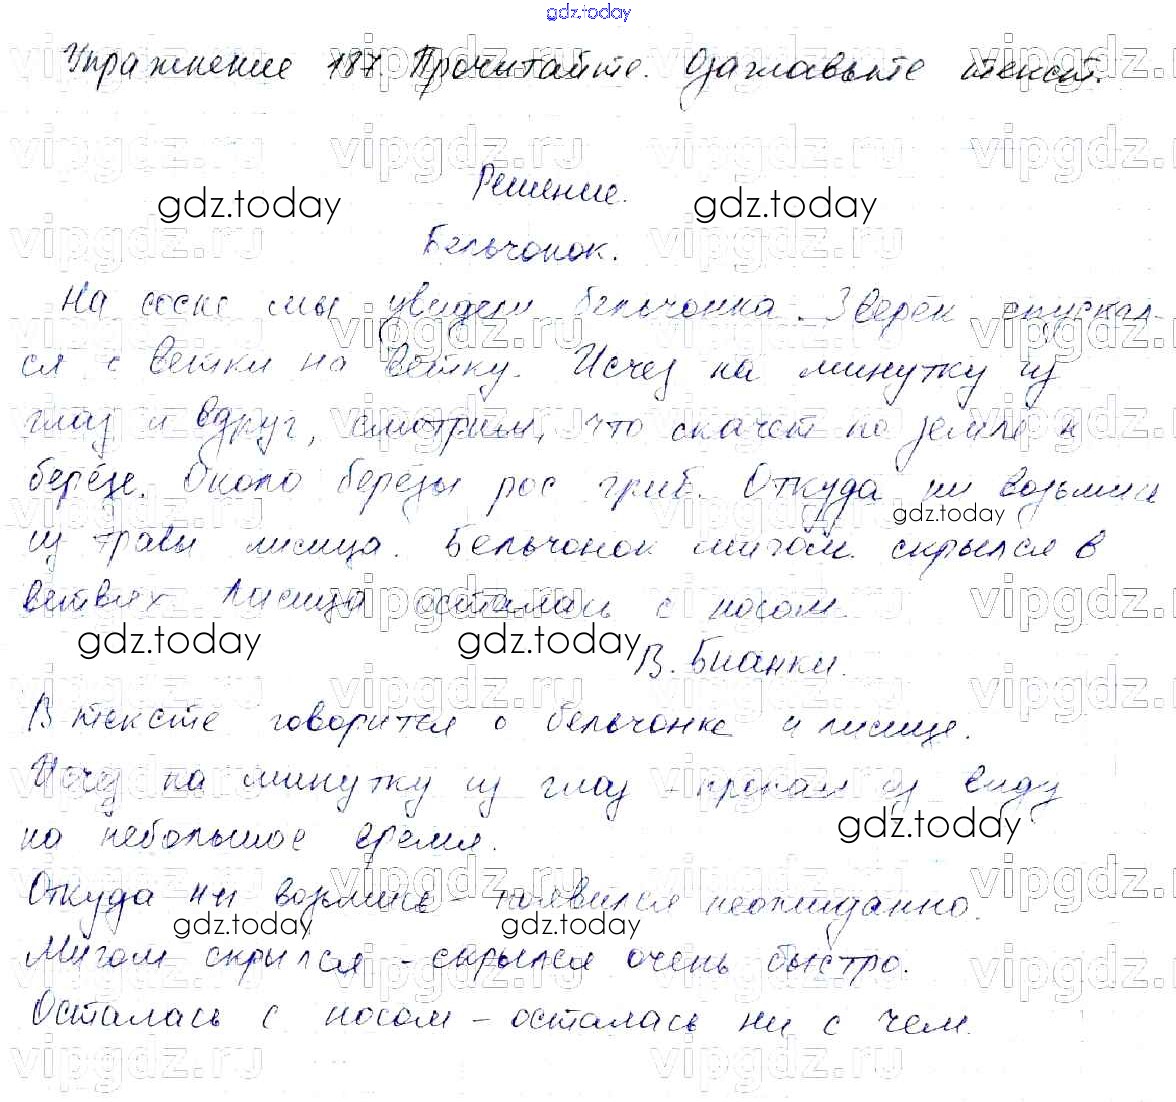 gdz.today
Упражнение 187. Прочитайте. Озаглавьте текст.
Решение.
Бельчонок.
На сосне мы увидели бельчонка. Зверёк спускал-
ся с ветки на ветку. Исчез на минутку из
глаз и вдруг, смотрим, что скачет по земле к
берёзе. Около берёзы рос гриб. Откуда ни возьмись
из травы лисица. Бельчонок мигом скрылся в
ветвях. Лисица осталась с носом.
В. Бианки.
В тексте говорится о бельчонке и лисице.
Исчез на минутку из глаз - пропал из виду
на небольшое время.
Откуда ни возьмись - появился неожиданно.
Мигом скрылся - скрылся очень быстро.
Осталась с носом - осталась ни с чем.